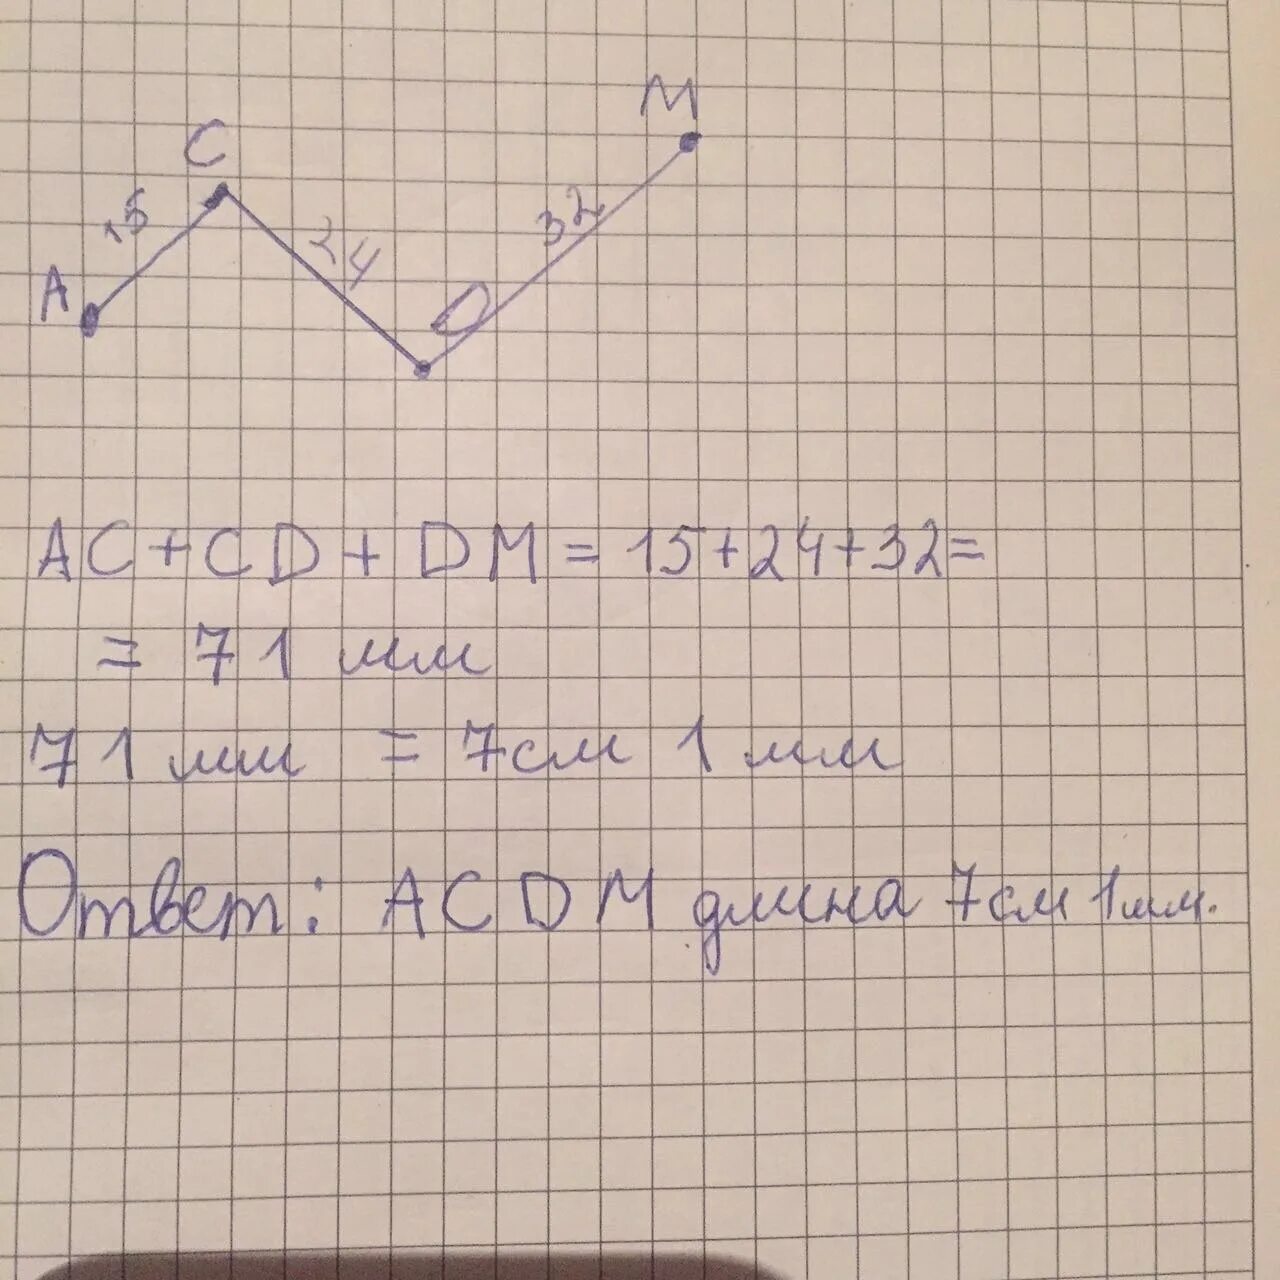 M
C
15
24
32
A
D
AC + CD + DM = 15+24+32=
= 71 мм
71 мм = 7см 1 мм
Ответ: ACDM длина 7см 1мм.